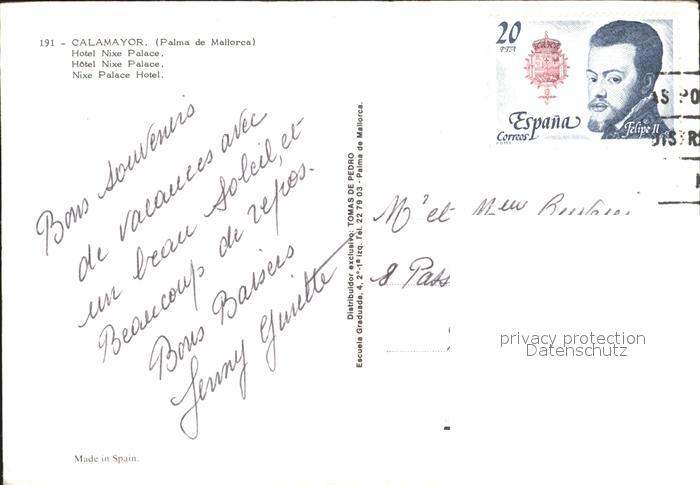 191 - CALAMAYOR. (Palma de Mallorca)
Hotel Nixe Palace.
Hôtel Nixe Palace.
Nixe Palace Hotel.
Bons souvenirs
de vacances avec
un beau soleil, et
Beaucoup de repos.
Bons Baisers
Jenny Ginette
Made in Spain.
Distribuidor exclusivo: TOMAS DE PEDRO
Escuela Graduada, 4, 2°-1ª izq. Tel. 22 79 03 - Palma de Mallorca.
20
PTA
España
Correos
Felipe II
AS PO
DISTR
Mr et Mme
8 Pass
privacy protection
Datenschutz